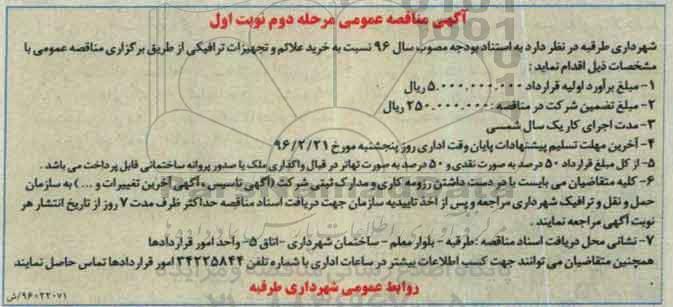 آگهی مناقصه عمومی مرحله دوم نوبت اول
شهرداری طرقبه در نظر دارد به استناد بودجه مصوب سال ۹۶ نسبت به خرید علائم و تجهیزات ترافیکی از طریق برگزاری مناقصه عمومی با
مشخصات ذیل اقدام نماید :
۱- مبلغ برآورد اولیه قرارداد ۵.۰۰۰.۰۰۰.۰۰۰ ریال
۲- مبلغ تضمین شرکت در مناقصه : ۲۵۰.۰۰۰.۰۰۰ ریال
۳- مدت اجرای کار یک سال شمسی
۴- آخرین مهلت تسلیم پیشنهادات پایان وقت اداری روز پنجشنبه مورخ ۹۶/۲/۲۱
۵- از کل مبلغ قرارداد ۵۰ درصد به صورت نقدی و ۵۰ درصد به صورت تهاتر در قبال واگذاری ملک یا صدور پروانه ساختمانی قابل پرداخت می باشد .
۶- کلیه متقاضیان می بایست با در دست داشتن رزومه کاری و مدارک ثبتی شرکت (آگهی تاسیس ، آگهی آخرین تغییرات و ... ) به سازمان
حمل و نقل و ترافیک شهرداری مراجعه و پس از اخذ تاییدیه سازمان جهت دریافت اسناد مناقصه حداکثر ظرف مدت ۷ روز از تاریخ انتشار هر
نوبت آگهی مراجعه نمایند .
۷- نشانی محل دریافت اسناد مناقصه : طرقبه - بلوار معلم - ساختمان شهرداری - اتاق ۵- واحد امور قراردادها
همچنین متقاضیان می توانند جهت کسب اطلاعات بیشتر در ساعات اداری با شماره تلفن ۳۴۲۲۵۸۴۴ امور قراردادها تماس حاصل نمایند
.
روابط عمومی شهرداری طرقبه
۹۶۰۲۲۰۷۱/ش